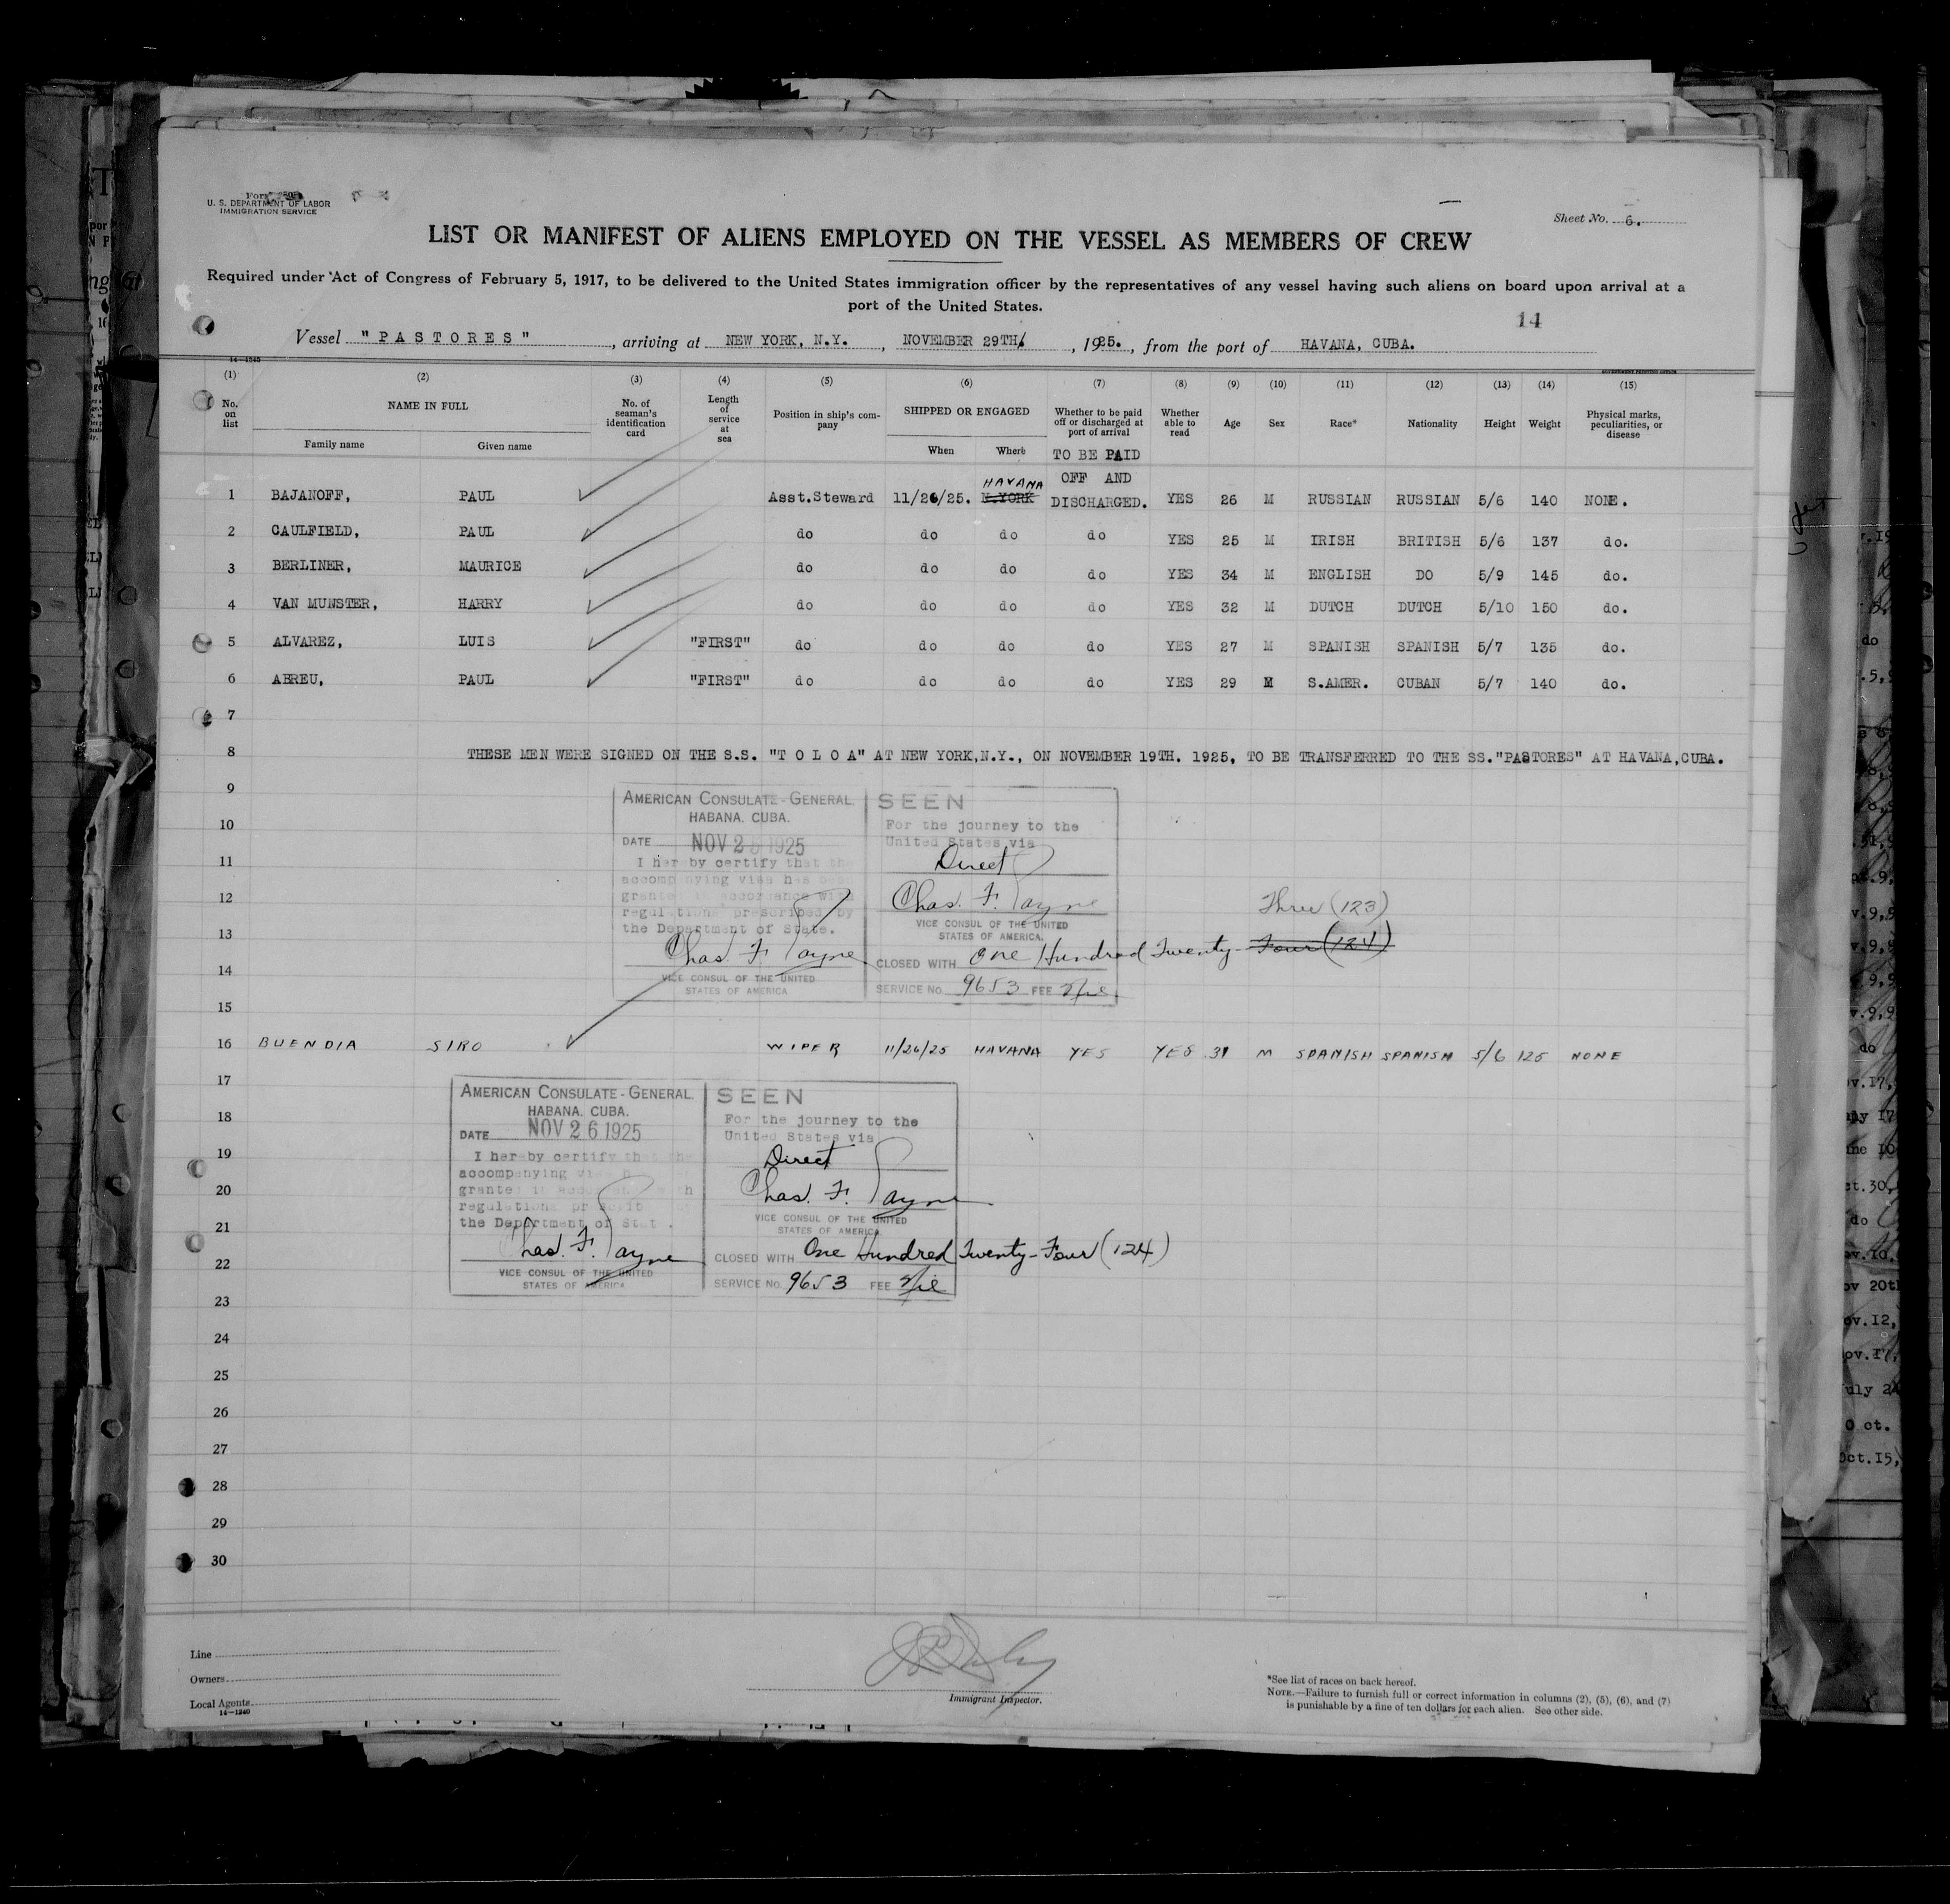 U. S. DEPARTMENT OF LABOR
IMMIGRATION SERVICE
Sheet No. 6.
LIST OR MANIFEST OF ALIENS EMPLOYED ON THE VESSEL AS MEMBERS OF CREW
Required under Act of Congress of February 5, 1917, to be delivered to the United States immigration officer by the representatives of any vessel having such aliens on board upon arrival at a
port of the United States.
14
Vessel "PASTORES", arriving at NEW YORK, N.Y., NOVEMBER 29TH, 1925., from the port of HAVANA, CUBA.
14-1240
(1) (2) (3) (4) (5) (6) (7) (8) (9) (10) (11) (12) (13) (14) (15)
No. on list NAME IN FULL Family name Given name No. of seaman's identification card Length of service at sea Position in ship's company SHIPPED OR ENGAGED When Where Whether to be paid off or discharged at port of arrival Whether able to read Age Sex Race* Nationality Height Weight Physical marks, peculiarities, or disease
1 BAJANOFF, PAUL Asst.Steward 11/26/25. N.YORK HAVANA TO BE PAID OFF AND DISCHARGED. YES 26 M RUSSIAN RUSSIAN 5/6 140 NONE.
2 CAULFIELD, PAUL do do do do YES 25 M IRISH BRITISH 5/6 137 do.
3 BERLINER, MAURICE do do do do YES 34 M ENGLISH DO 5/9 145 do.
4 VAN MUNSTER, HARRY do do do do YES 32 M DUTCH DUTCH 5/10 150 do.
5 ALVAREZ, LUIS "FIRST" do do do do YES 27 M SPANISH SPANISH 5/7 135 do.
6 ABREU, PAUL "FIRST" do do do do YES 29 M S.AMER. CUBAN 5/7 140 do.
7
8 THESE MEN WERE SIGNED ON THE S.S. "T O L O A" AT NEW YORK,N.Y., ON NOVEMBER 19TH. 1925, TO BE TRANSFERRED TO THE SS."PASTORES" AT HAVANA,CUBA.
9
10
11
12
13
14
15
AMERICAN CONSULATE-GENERAL.
HABANA. CUBA.
DATE NOV 2 1925
I her by certify that the
accomp nying visa has been
grante in accordance with
regulations prescribed by
the Department of State.
Chas. F. Payne
VICE CONSUL OF THE UNITED
STATES OF AMERICA
SEEN
For the journey to the
United States via
Direct
Chas. F. Payne
VICE CONSUL OF THE UNITED
STATES OF AMERICA.
Three (123)
CLOSED WITH One Hundred Twenty-Four (124)
SERVICE No. 9653 FEE Nil
16 BUENDIA SIRO WIPER 11/26/25 HAVANA YES YES 31 M SPANISH SPANISH 5/6 125 NONE
17
18
19
20
21
22
23
24
25
26
27
28
29
30
AMERICAN CONSULATE-GENERAL.
HABANA. CUBA.
DATE NOV 26 1925
I hereby certify that the
accompanying vi
grante in acco with
regulations pr
the Department of Stat .
Chas. F. Payne
VICE CONSUL OF THE UNITED
STATES OF AMERICA
SEEN
For the journey to the
United States via
Direct
Chas. F. Payne
VICE CONSUL OF THE UNITED
STATES OF AMERICA
CLOSED WITH One Hundred Twenty-Four (124)
SERVICE No. 9653 FEE Nil
Line
Owners
Local Agents
14-1240
Immigrant Inspector.
*See list of races on back hereof.
NOTE.—Failure to furnish full or correct information in columns (2), (5), (6), and (7)
is punishable by a fine of ten dollars for each alien. See other side.